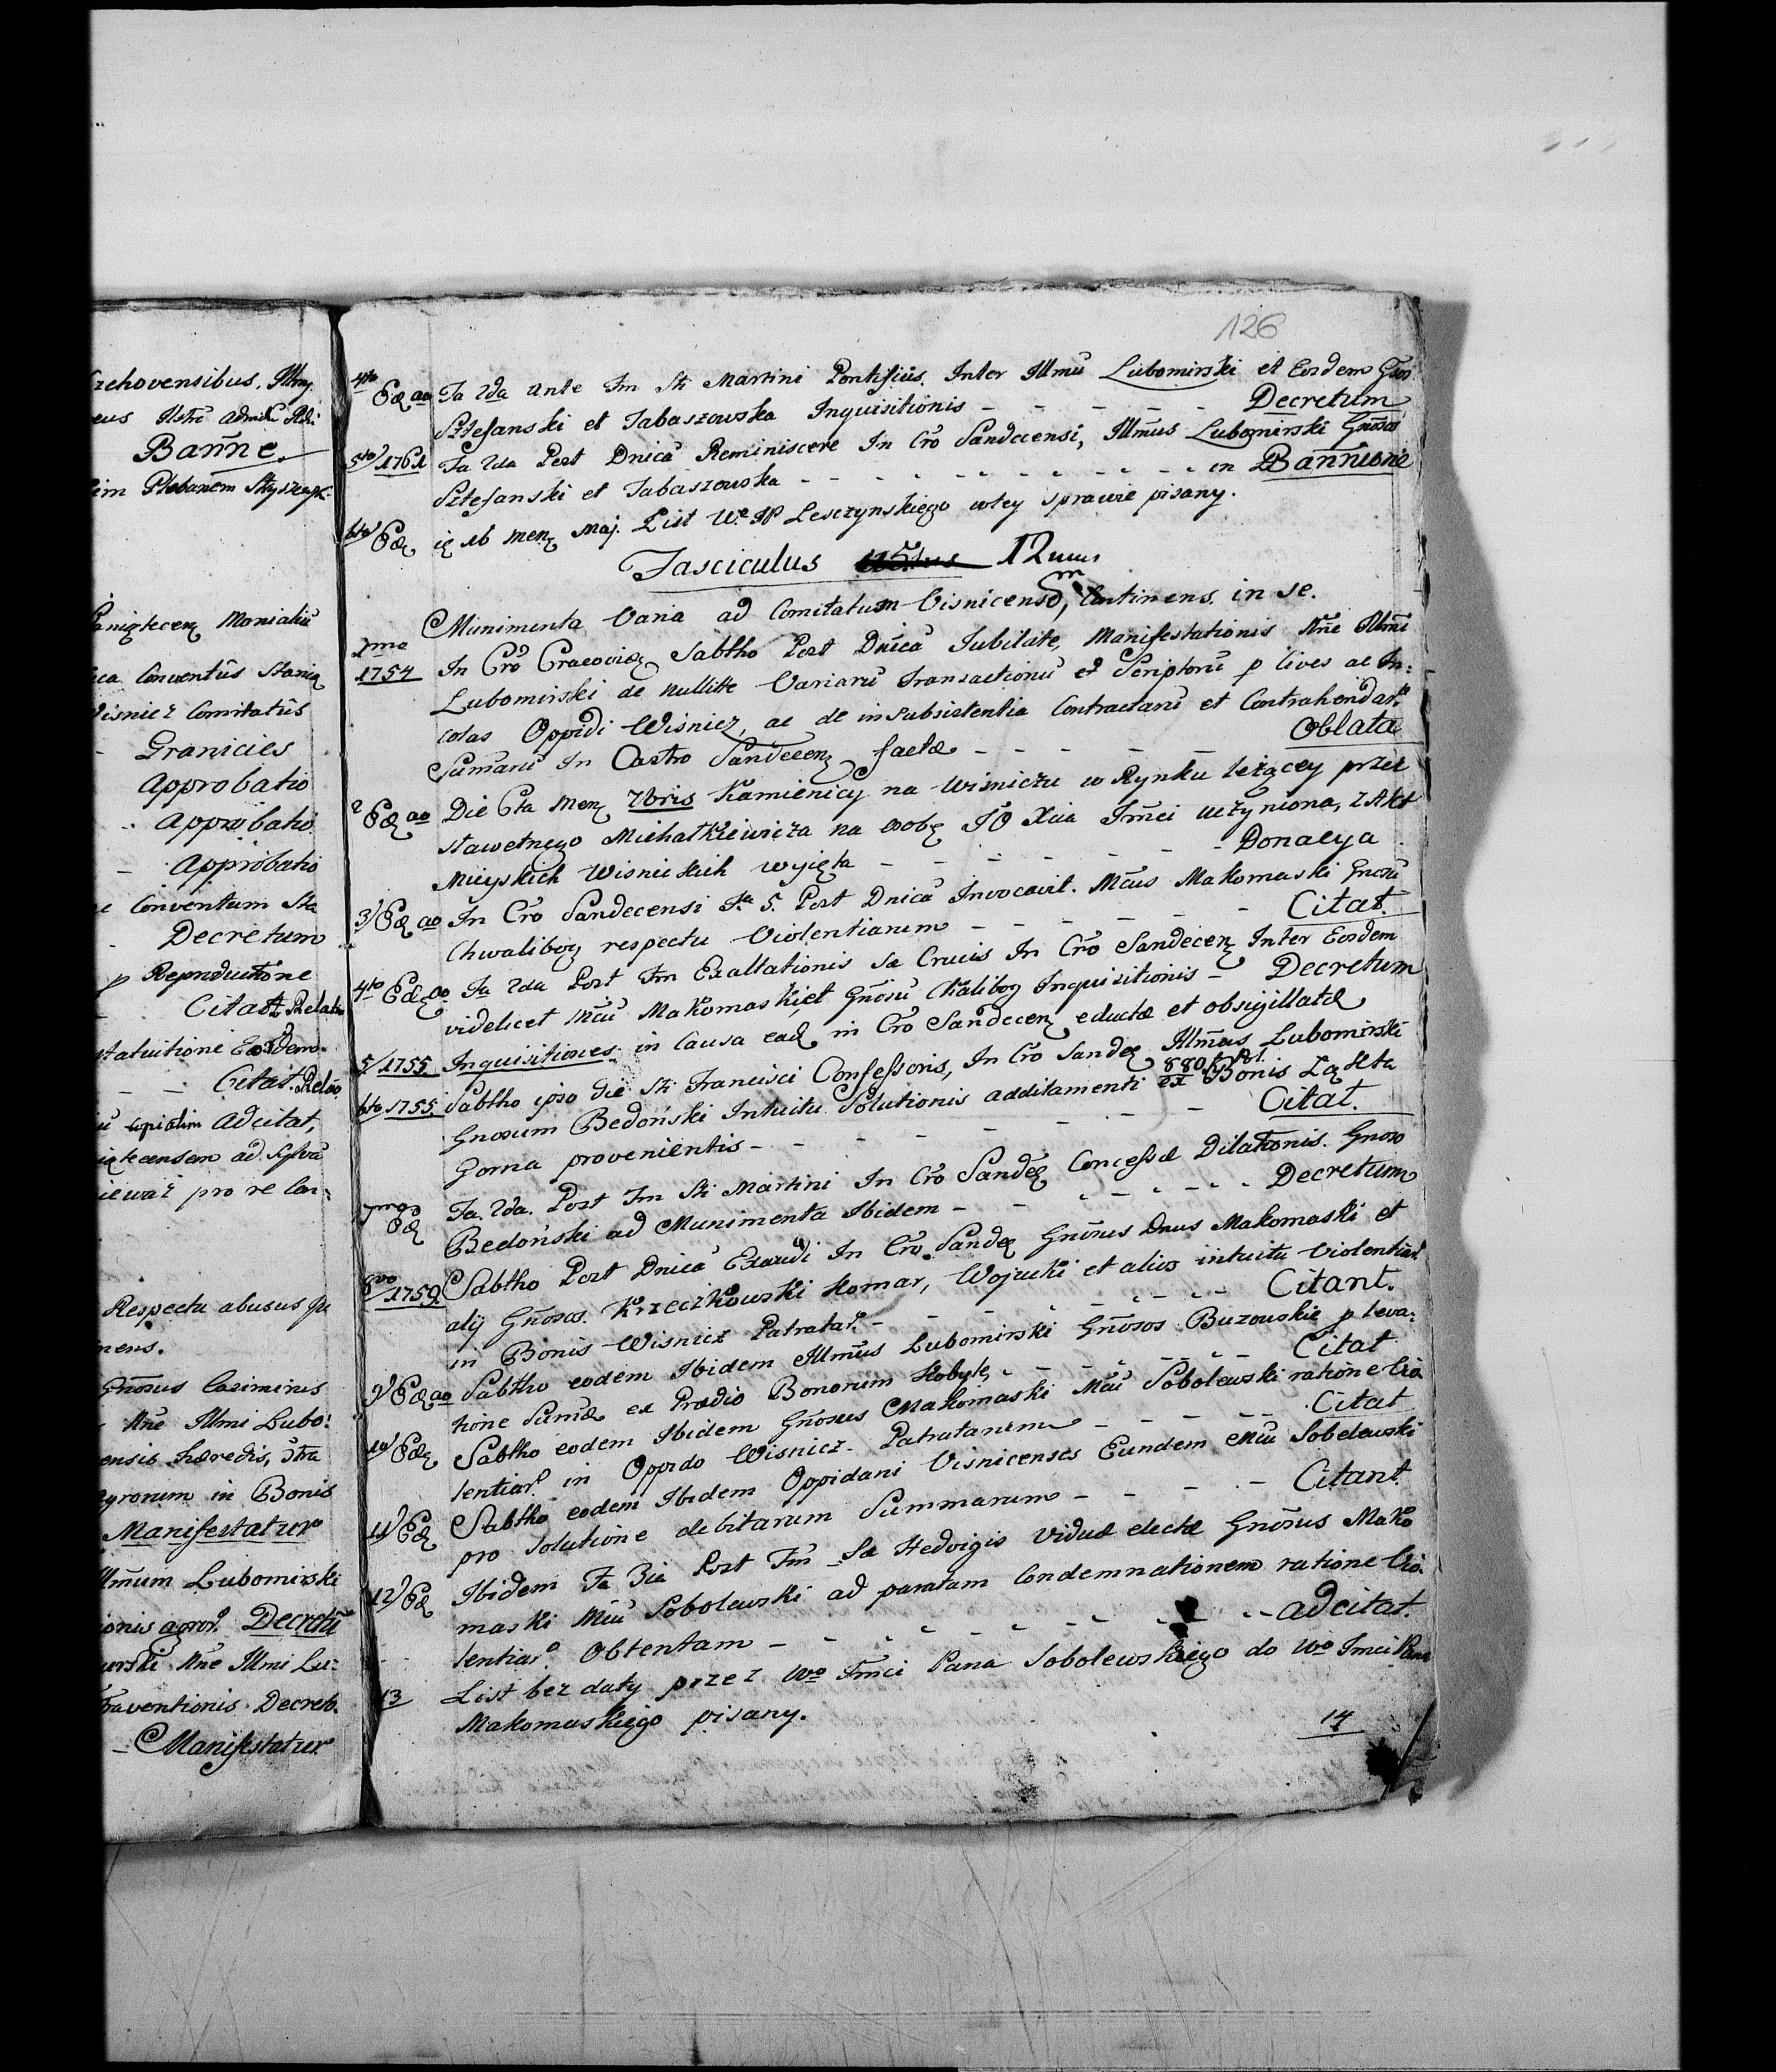 126
zehovensibus. Illmg
eus Ilstri admdu Rdi
Banne.
Plebanem Skyszczyk:
Paniątecens Monialiu
ica Conventus Stanią
Visnicz Comitatus
Granicies
Approbatio
Approbatio
Approbatio
Conventum Sta
Decretum
p Reproductione
Citat. Relatio
statuitione Eosdem.
Citat. Relao
Adcitat,
iątecensem ad Sylva
iewaz pro re Con:
Respectu abusus
nens.
Gnosus Casimirus
Nne Illmi Lubo:
ensis Hæredis,
Agrorum in Bonis
Manifestatur
Illmum Lubomirski
ionis agror. Decretu
urski Nne Illmi Lu:
traventionis Decreto.
Manifestatur
4to Ed ao Fa 2da ante Fm Sti Martini Pontificis. Inter Illmu Lubomirski et Eosdem Gsos
Sztefanski et Tabaszowska Inquisitionis - - - - Decretum
5to 1761 Fa 2da Post Dnica Reminiscere In Cro Sandecensi, Illmus Lubomirski Gnosos
Sztefanski et Tabaszowska - - - - in Bannione
6to Ed 16 Mens Maj. List W. JP Lesczynskiego wtey sprawie pisany.
Fasciculus 12mus
Munimenta Varia ad Comitatum Visnicensem, Continens in se.
1mo
1754 In Cro Cracovien Sabtho Post Dnica Jubilate, Manifestationis Nne Illmi
Lubomirski de nullitte Variaru Transactionu et Scriptoru p Cives ac In:
colas Oppidi Wisnicz, ac de insubsistentia Contractaru et Contrahendar.
Sumaru In Castro Sandecen factæ - - - - Oblata
2 Ed ao Die 6ta Mens 7bris Kamienicy na Wisniczu w Rynku leżącey przez
sławetnego Michałkiewicza na osobę JO Xcia Jmci uczyniona, z Akt
Mieyskich Wisnickich wyięta - - - - Donacya
3) Ed ao In Cro Sandecensi Fa 5. Post Dnica Invocavit. Mcus Makomaski Gnosu
Chwalibog respectu Violentiarum - - - - Citat.
4to Ed ao Fa 2da Post Fm Exaltationis Sæ Crucis In Cro Sandecen Inter Eosdem
videlicet Mcu Makomaski, et Gnosu Chalibog Inquisitionis - Decretum
5/ 1755 Inquisitiones in Causa ead in Cro Sandecen eductæ et obsigillatæ
6to 1755 Sabtho ipso die Sti Francisci Confessoris, In Cro Sandec Illmus Lubomirski
Gnosum Bedoński Intuitu Solutionis additamenti 880 fl pol. ex Bonis Łąkta
Gorna provenientis - - - - Citat.
7mo Ed Fa. 2da. Post Fm Sti Martini In Cro Sandec Concessæ Dilationis. Gnoso
Bedoński ad Munimenta Ibidem - - - - Decretum
8vo 1759 Sabtho Post Dnica Exaudi In Cro Sandec Gnosus Dnus Makomaski et
alij Gnosos. Krzeczkowski Komar, Wojucki et alios intuitu violentiar.
in Bonis Wisnicz Patratar. - - - - Citant.
9) Ed ao Sabtho eodem Ibidem Illmus Lubomirski Gnosos Buzouskie p leva:
tione Sumæ ex Prædio Bonorum Kobyle - - - - Citat
10) Ed Sabtho eodem Ibidem Gnosus Makomaski Mcu Sobolewski ratione Vio
lentiar. in Oppido Wisnicz Patratarum - - - - Citat
11) Ed Sabtho eodem Ibidem Oppidani Visnicenses Eundem Mcu Sobolewski
pro solutione debitarum Summarum - - - - Citant.
12) Ed Ibidem Fa 3ia Post Fm Sæ Hedvigis Viduæ electæ Gnosus Mako
maski Mcu Sobolewski ad paratam Condemnationem ratione Vio:
lentiar. Obtentam - - - - adcitat.
13 List bez daty przez Wo Jmci Pana Sobolewskiego do Wo Jmci Pana
Makomaskiego pisany.
14